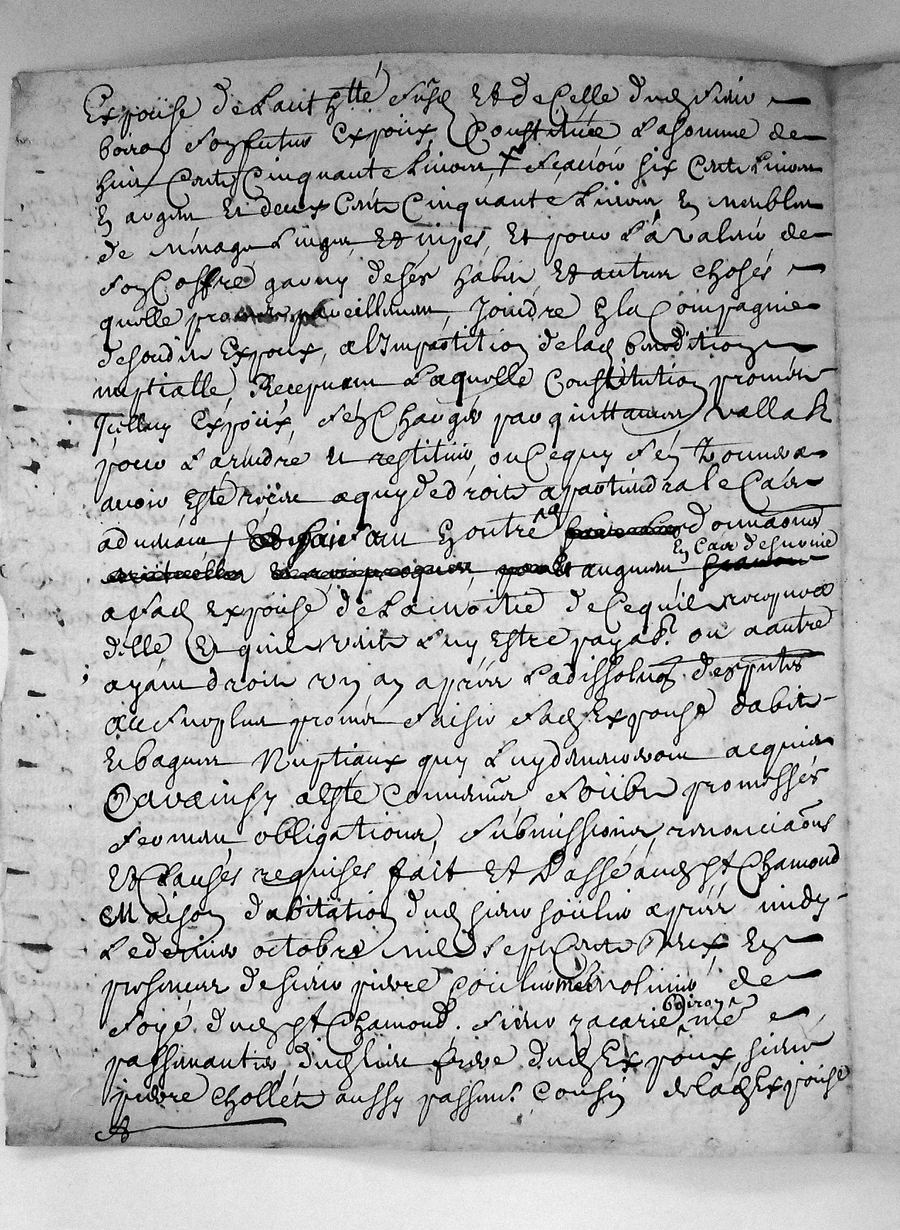 Expouse de Lauthtte susd Et de Celle dud sieur
boiron son futur Expoux, Constitüée La somme de
huit Cents Cinquante Livres, scavoir six Cents Livres
En argent Et deux Cents Cinquante Livres En meubles
de menage Linges Et nipes, Et pour La valeur de
son Coffre garny de ses habits Et autres choses
quelle promet pareillement Joindre En la Compagnie
desondit Expoux, a l'Impartition de lad benediction
nuptialle, Recepvant Laquelle Constitution promet
Icelluy Expoux, sen Charger par quittances vallable
pour La rendre et restituer ou Ce quy sen trouvera
avoir Esté reçeu a quy de droit apartiendra le Cas
advenant, En outre donnaons
En Cas de survie
augment
a sad Expouse de La moitié de Ce quil recepvra
delle Et quil voit Luy Estre payab. ou a autre
ayant droit un an apres La dissoluon
au surplus promet saisir sad Expouse dabits
Et bagues Nuptiaux quy Luy demeureront acquis
Car ainsy a esté Convenu soubs promesses
serment obligations, submissions renonciaons
Et Clauses requises fait Et Passé aud St Chamond
Maison dabitation dud sieur soulier apres midy
Le dernier octobre mil sept Cents Et
presences de sieur pierre molinier de
dud St Chamond. sieur zacarie boiron me
passementier dud lieu frere dud Expoux, sieur
pierre chollet aussy passemt. Cousin de lad Expouse